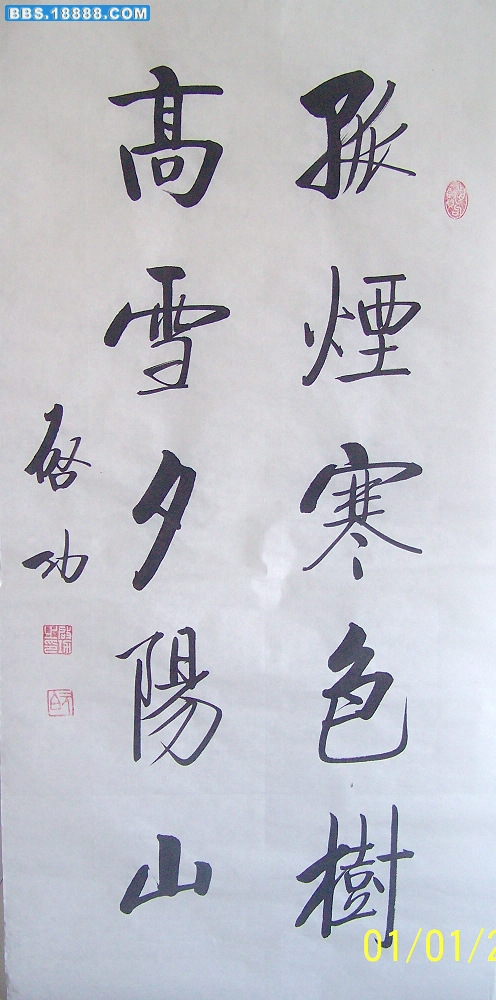 BBS.18888.COM
孤煙寒色樹
高雪夕陽山
啓功
01/01/2